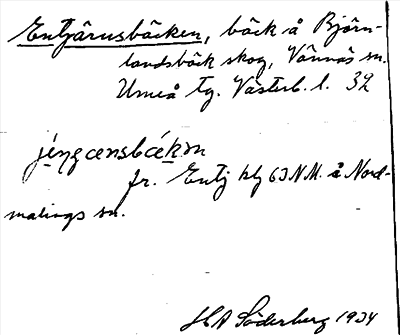 Entjärnsbäcken, bäck å Björn-
landsbäck skog, Vännäs sn.
Umeå tg. Västerb. l. 32
fr. Entj blg 63 N.M. å Nord-
malings sn.
HA Söderberg 1934